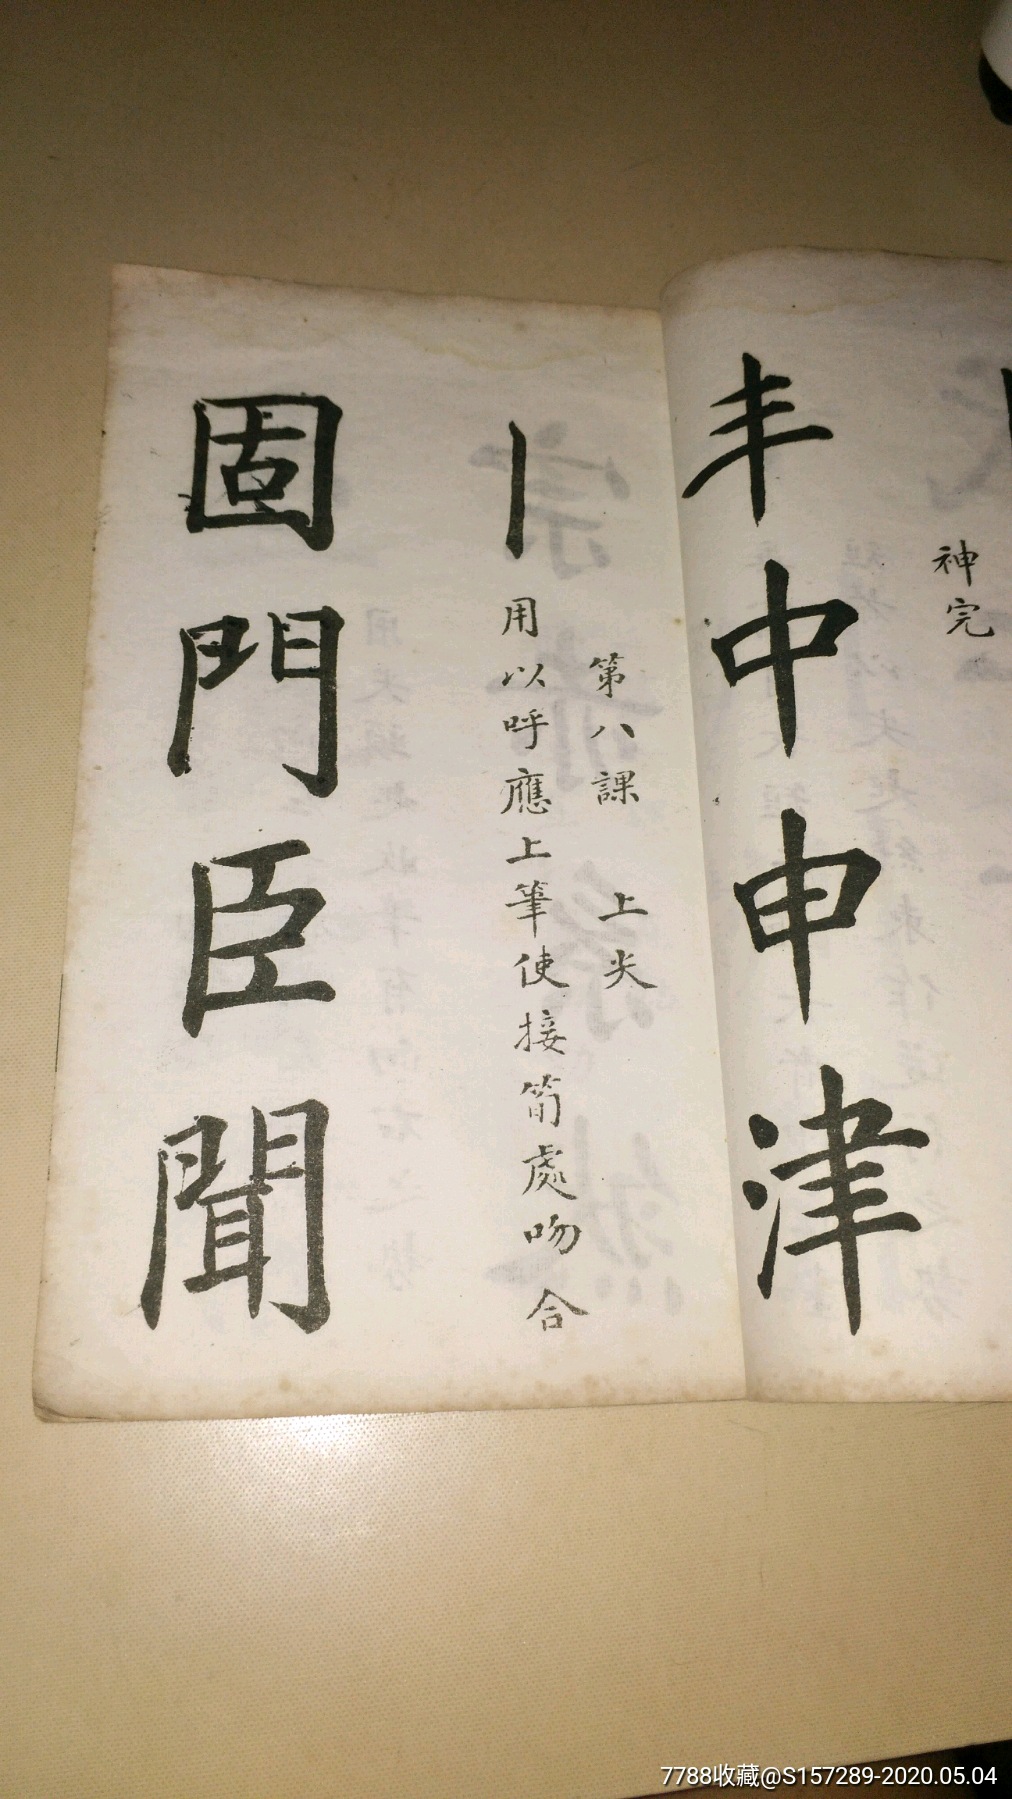 神完
丰中申津
第八課 上尖
丨用以呼應上筆使接筍處吻合
固門臣聞
7788收藏@S157289-2020.05.04